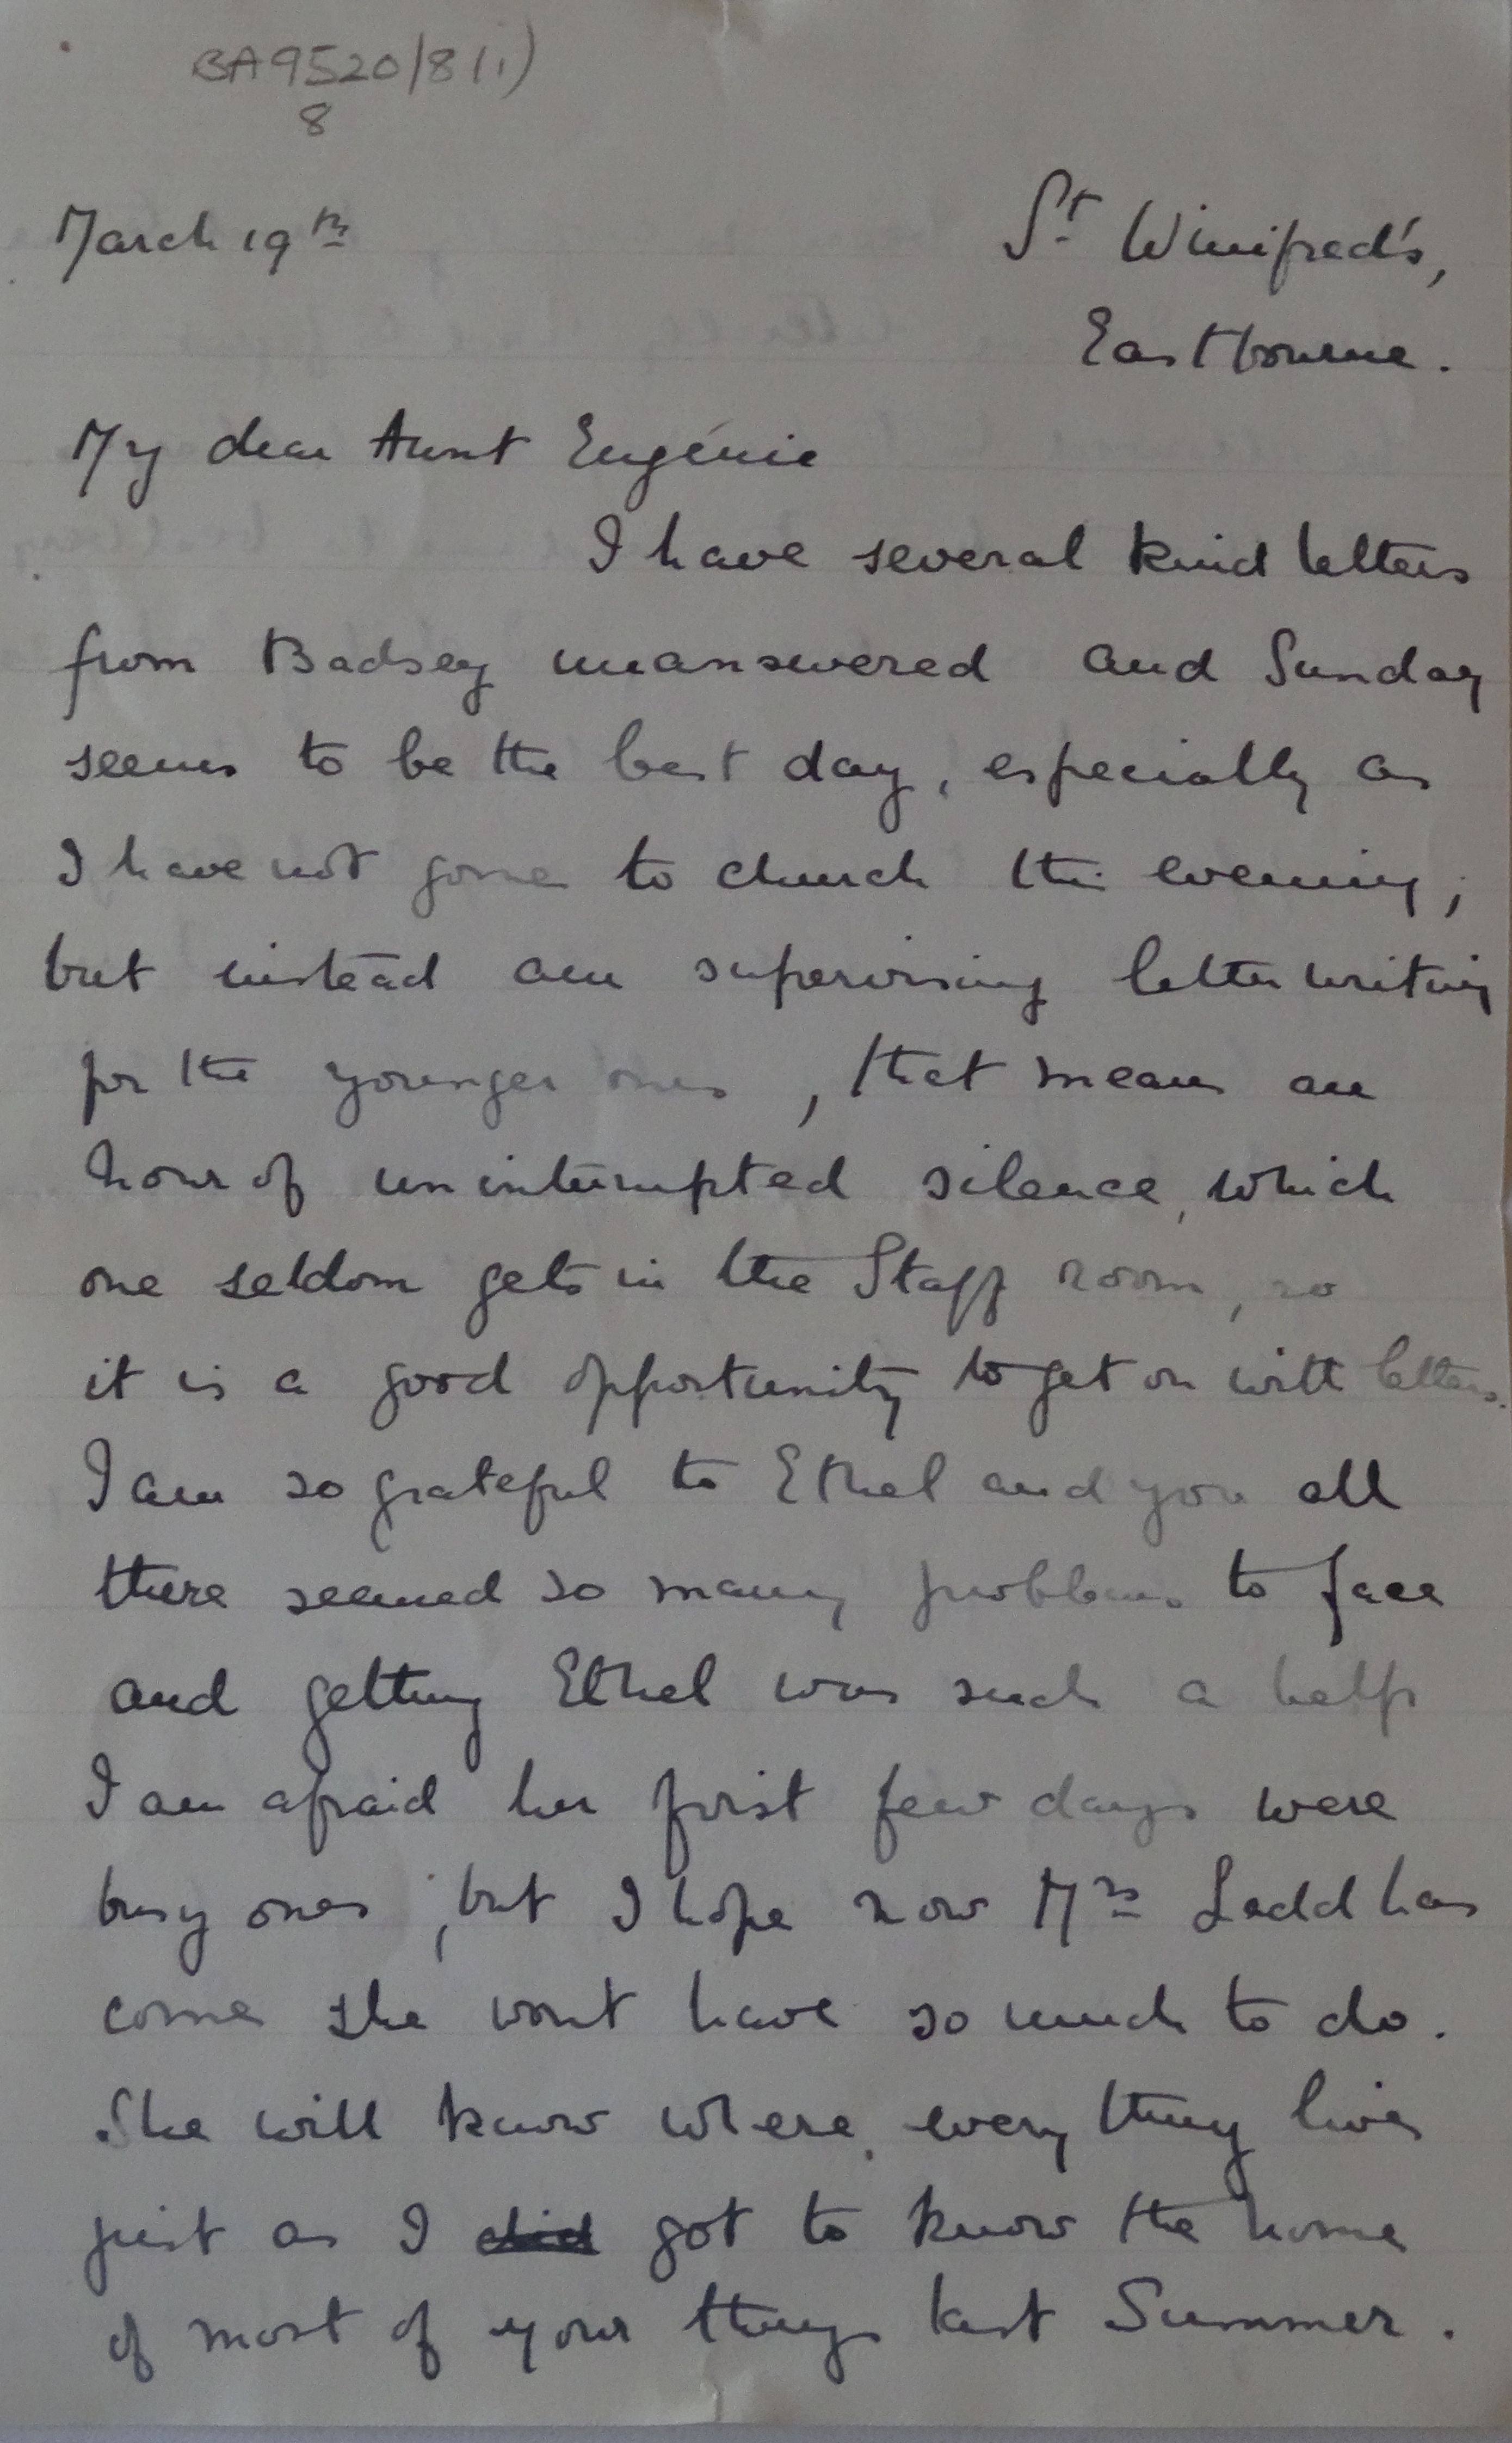 BA9520/8(1)
8
March 19th
St Winifred's,
Eastbourne.
My dear Aunt Eugénie
I have several kind letters
from Badsey unanswered and Sunday
seems to be the best day, especially as
I have not gone to church this evening;
but instead am supervising letter writing
for the younger ones, that means an
hour of uninterrupted silence, which
one seldom gets in the Staff room, so
it is a good opportunity to get on with letters.
I am so grateful to Ethel and you all
there seemed so many problems to face
and getting Ethel was such a help
I am afraid her first few days were
busy ones, but I hope now Mrs Ladd has
come she wont have so much to do.
She will know where everything lives
just as I did got to know the home
of most of your things last Summer.